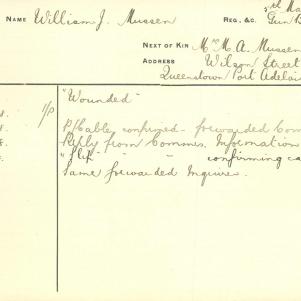 NAME William J. Mussen REG., &C. Gun B
NEXT OF KIN Mrs M. A. Mussen
ADDRESS Wilson Street
Queenstown Port Adelai
"Wounded"
P/Cable confirmed - forwarded Com
Reply from Commdr. Information
"Slip" " " confirming ca
Same forwarded Inquirer.